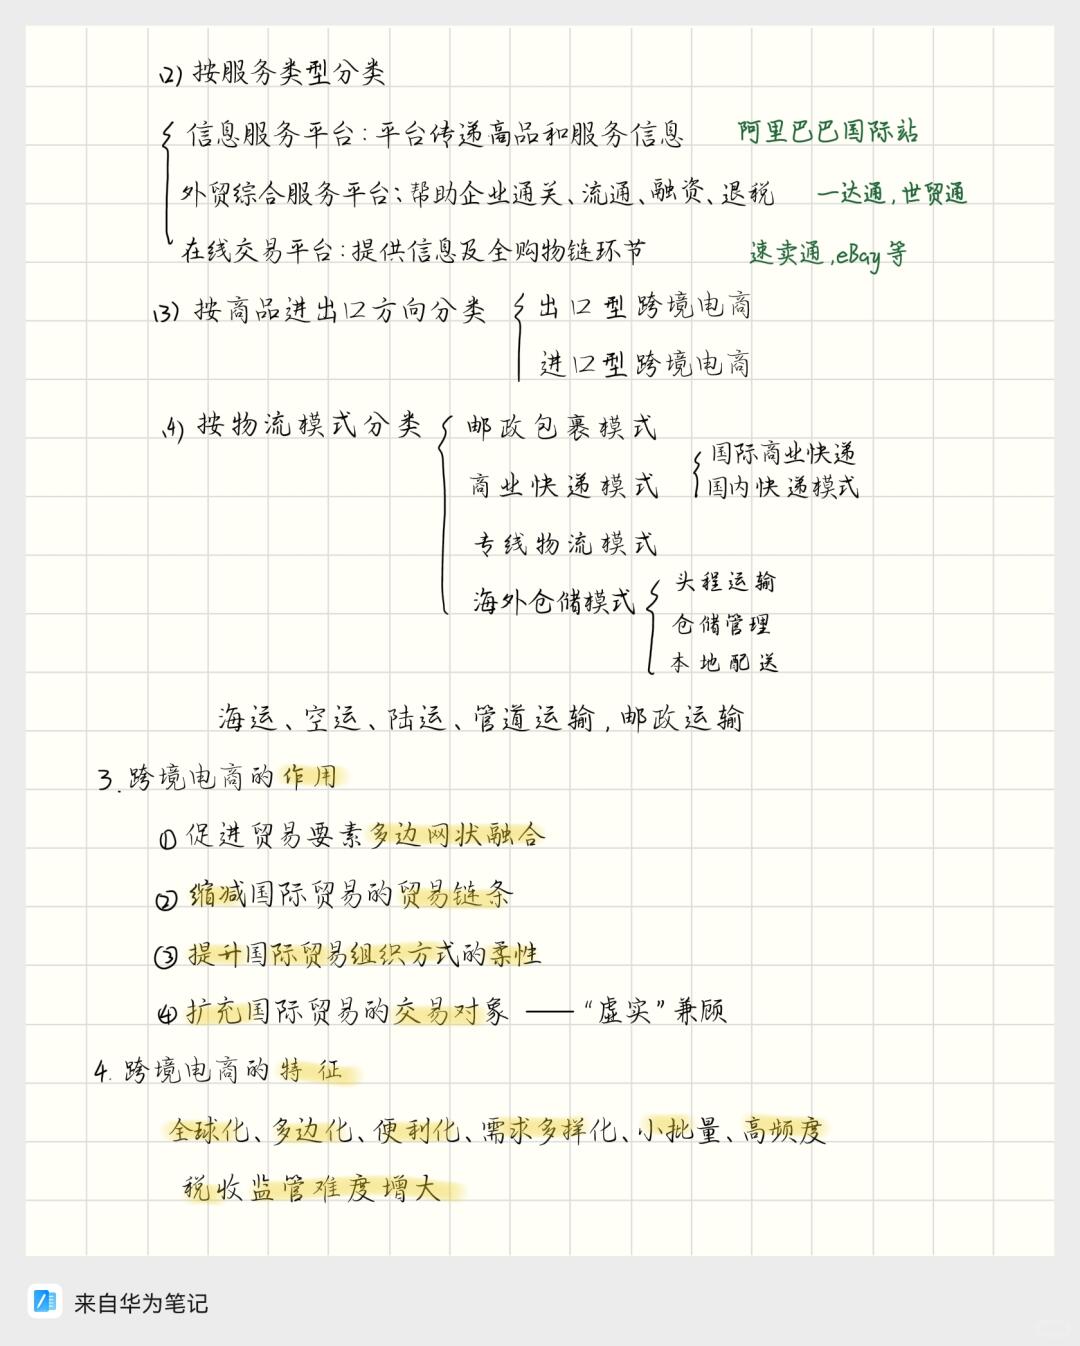 (2) 按服务类型分类
信息服务平台：平台传递商品和服务信息 阿里巴巴国际站
外贸综合服务平台：帮助企业通关、流通、融资、退税 一达通，世贸通
在线交易平台：提供信息及全购物链环节 速卖通，eBay等
(3) 按商品进出口方向分类 出口型跨境电商
进口型跨境电商
(4) 按物流模式分类 邮政包裹模式
商业快递模式 国际商业快递
国内快递模式
专线物流模式
海外仓储模式 头程运输
仓储管理
本地配送
海运、空运、陆运、管道运输，邮政运输
3. 跨境电商的作用
① 促进贸易要素多边网状融合
② 缩减国际贸易的贸易链条
③ 提升国际贸易组织方式的柔性
④ 扩充国际贸易的交易对象 ——“虚实”兼顾
4. 跨境电商的特征
全球化、多边化、便利化、需求多样化、小批量、高频度
税收监管难度增大
来自华为笔记